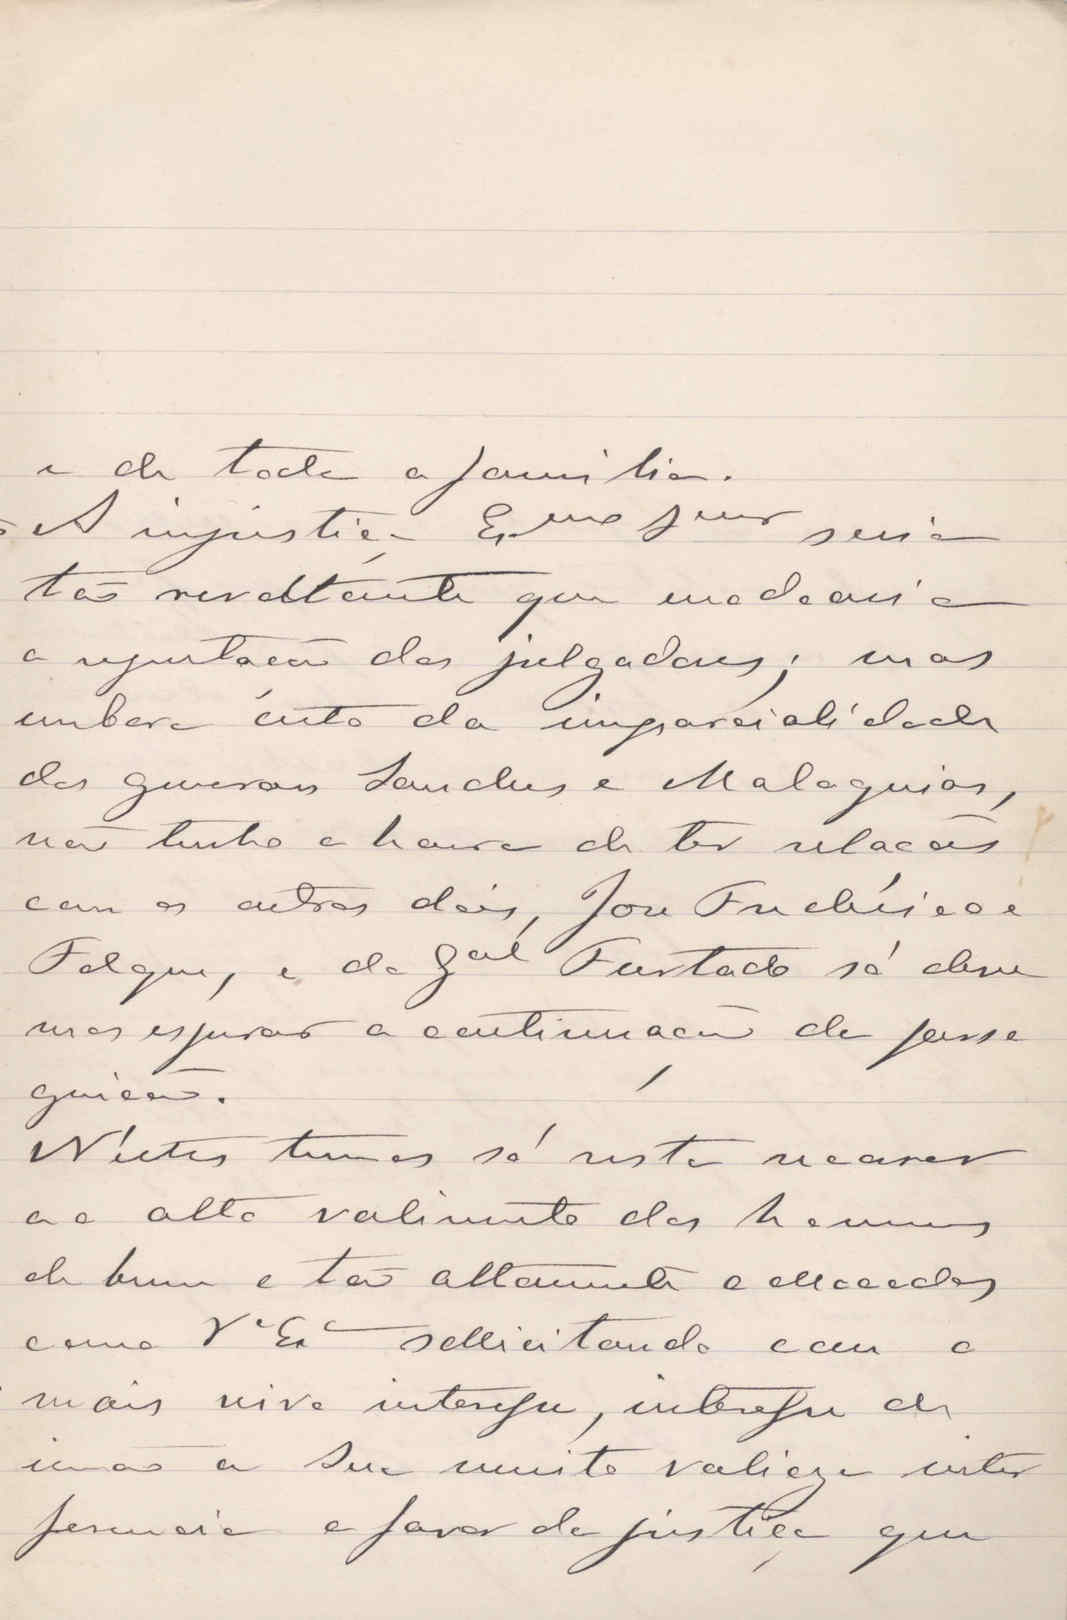 e de toda a familia.
A injustiça Exmo Snnr seria
tão revoltante que nodoaria
a reputação dos julgadores; mas
embora certo da imparcialidade
dos generaes Sanches e Malaquias,
não tenho a honra de ter relações
com os outros dois, José Frederico e
Folque, e do Gal Furtado só deve
mos esperar a continuação da perse
guição.
N'estes termos só resta recorrer
ao alto valimento dos homens
de bem e tão altamente collocados
como Va Exa sollicitando com o
mais vivo interesse, interesse de
irmão a sua muito valioza inter
ferencia a favor da justiça que